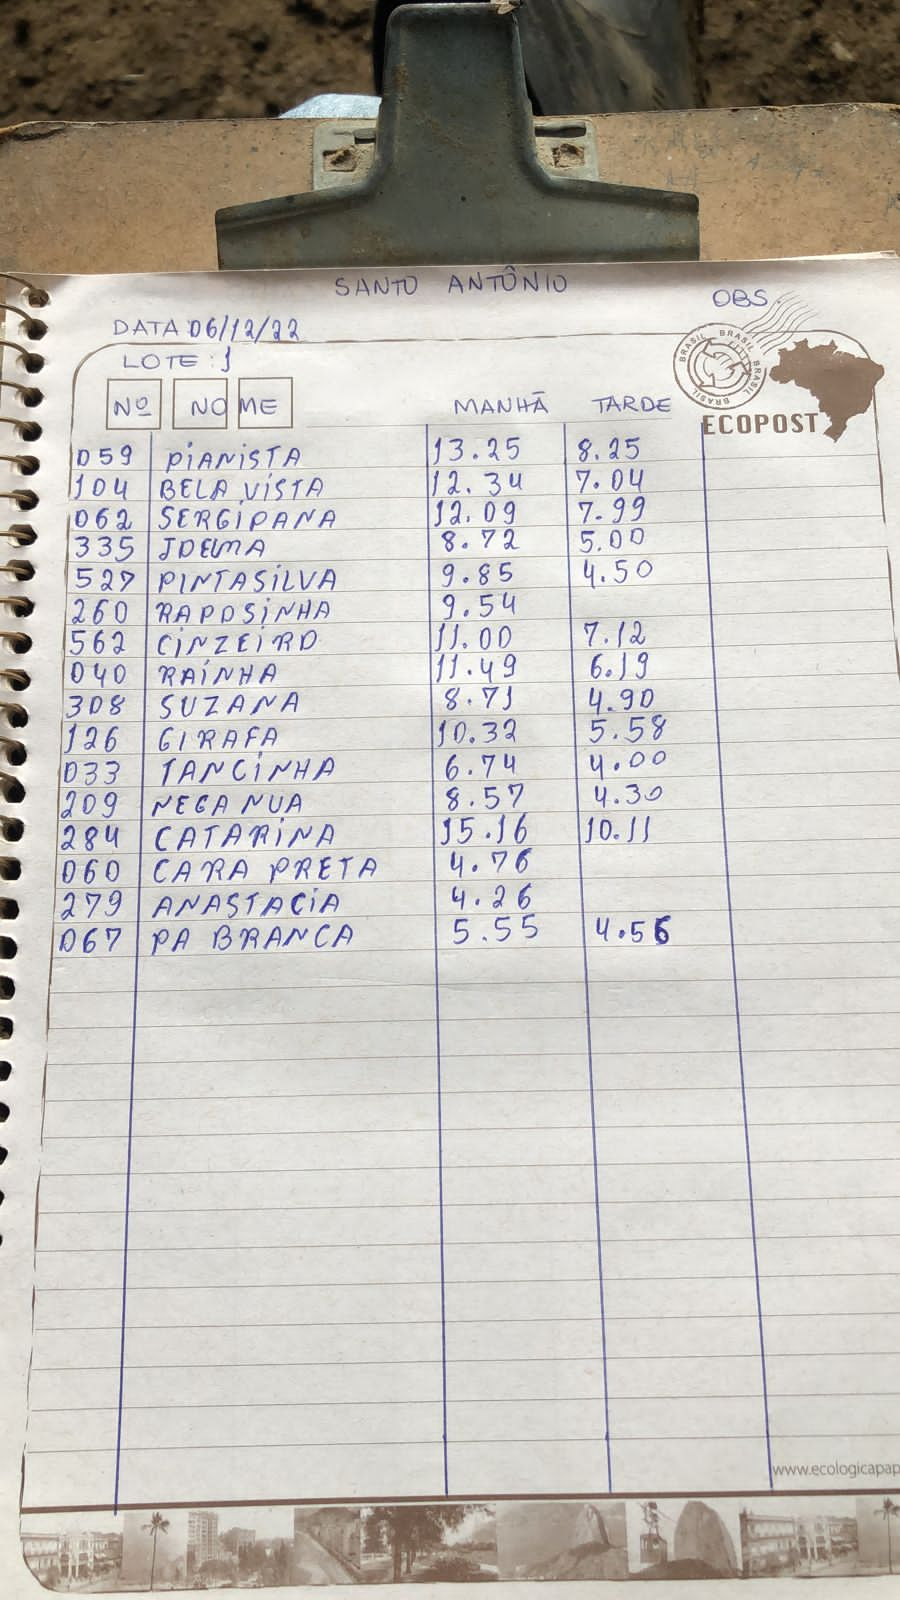 SANTO ANTÔNIO
OBS.
DATA 06/12/22
LOTE: 1
BRASIL BRASIL BRASIL BRASIL
ECOPOST
Nº NOME MANHÃ TARDE
059 PIANISTA 13.25 8.25
104 BELA VISTA 12.34 7.04
062 SERGIPANA 12.09 7.99
335 JOELMA 8.72 5.00
527 PINTASILVA 9.85 4.50
260 RAPOSINHA 9.54
562 CINZEIRO 11.00 7.12
040 RAÍNHA 11.49 6.19
308 SUZANA 8.71 4.90
126 GIRAFA 10.32 5.58
033 TANCINHA 6.74 4.00
209 NEGA NUA 8.57 4.30
284 CATARINA 15.16 10.11
060 CARA PRETA 4.76
279 ANASTACIA 4.26
067 PA BRANCA 5.55 4.56
www.ecologicapap